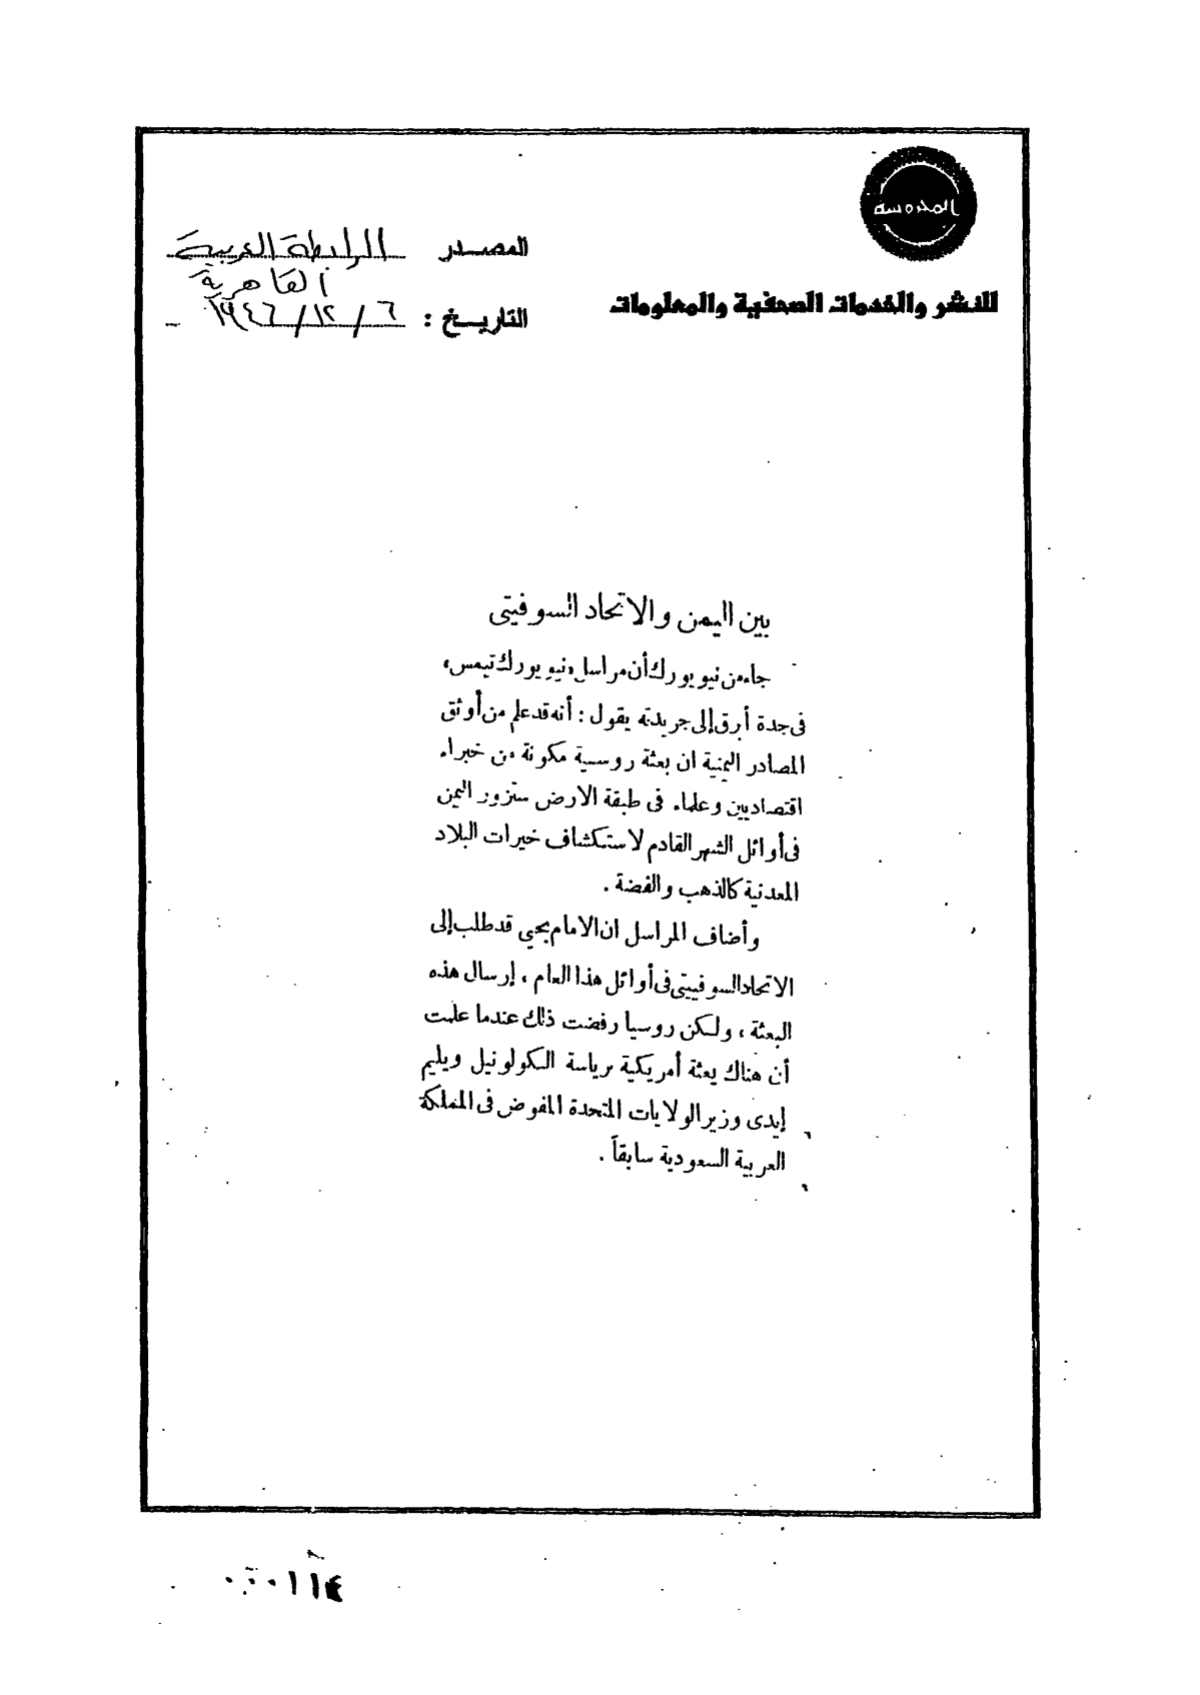 المحروسة
للنشر والخدمات الصحفية والمعلومات
المصدر الرابطة العربية
القاهرية
التاريخ : ٦ / ١٢ / ١٩٤٦
بين اليمن والاتحاد السوفيتى
جاء من نيو يورك أن مراسل «نيو يورك تيمس»
فى جدة أبرق إلى جريدته يقول : أنه قد علم من أوثق
المصادر اليمنية ان بعثة روسية مكونة من خبراء
اقتصاديين وعلماء فى طبقة الارض ستزور اليمن
فى أوائل الشهر القادم لاستكشاف خيرات البلاد
المعدنية كالذهب والفضة .
وأضاف المراسل ان الامام يحيي قد طلب إلى
الاتحاد السوفييتى فى أوائل هذا العام ، إرسال هذه
البعثة ، ولكن روسيا رفضت ذلك عندما علمت
أن هناك بعثة أمريكية برياسة الكولونيل ويليم
إيدى وزير الولايات المتحدة المفوض فى المملكة
العربية السعودية سابقاً .